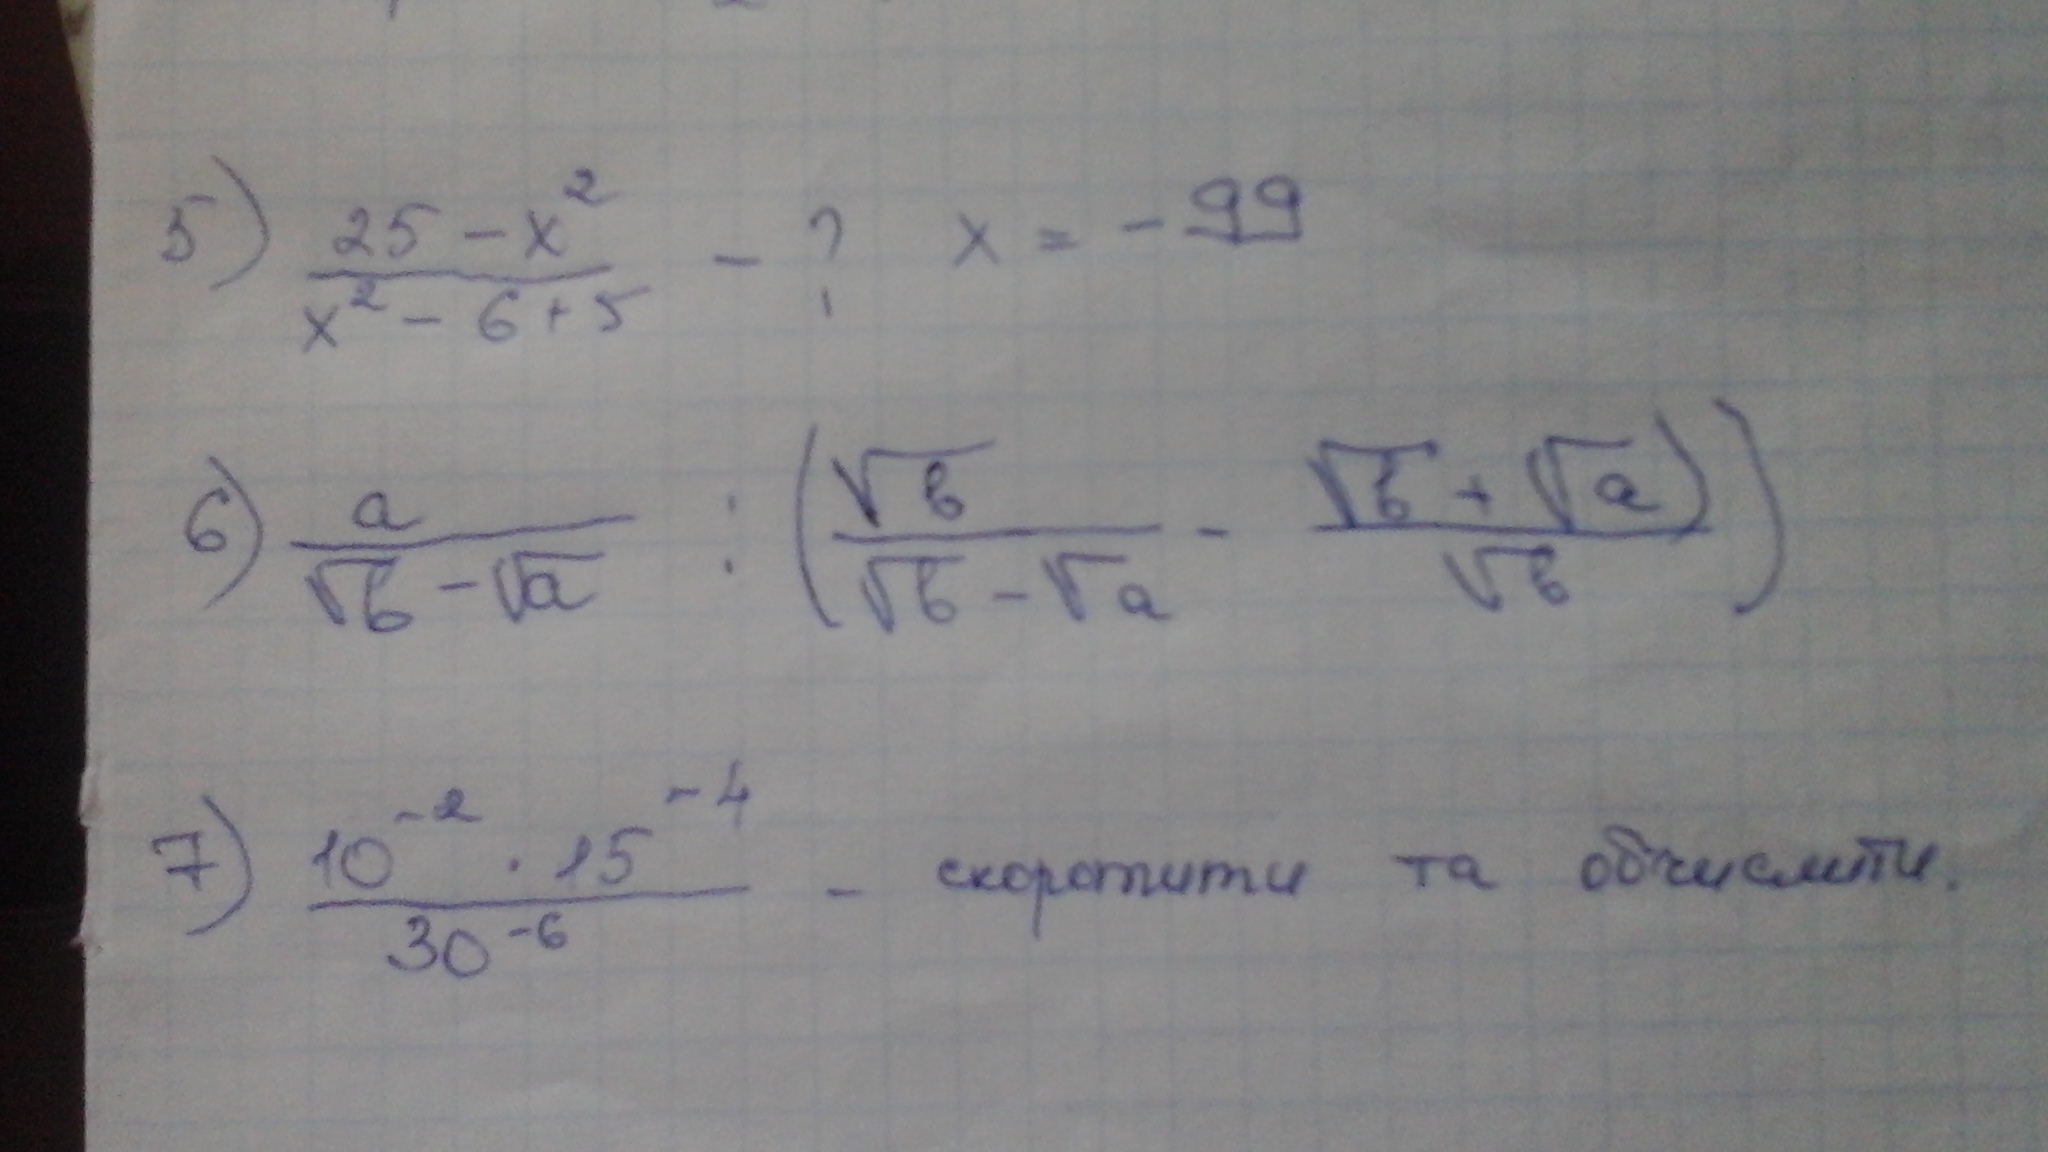 5) \frac{25 - x^2}{x^2 - 6 + 5} - ? x = - 99
6) \frac{a}{\sqrt{b} - \sqrt{a}} : \left( \frac{\sqrt{b}}{\sqrt{b} - \sqrt{a}} - \frac{\sqrt{b} + \sqrt{a})}{\sqrt{b}} \right)
7) \frac{10^{-2} \cdot 15^{-4}}{30^{-6}} - скоротити та обчислити.